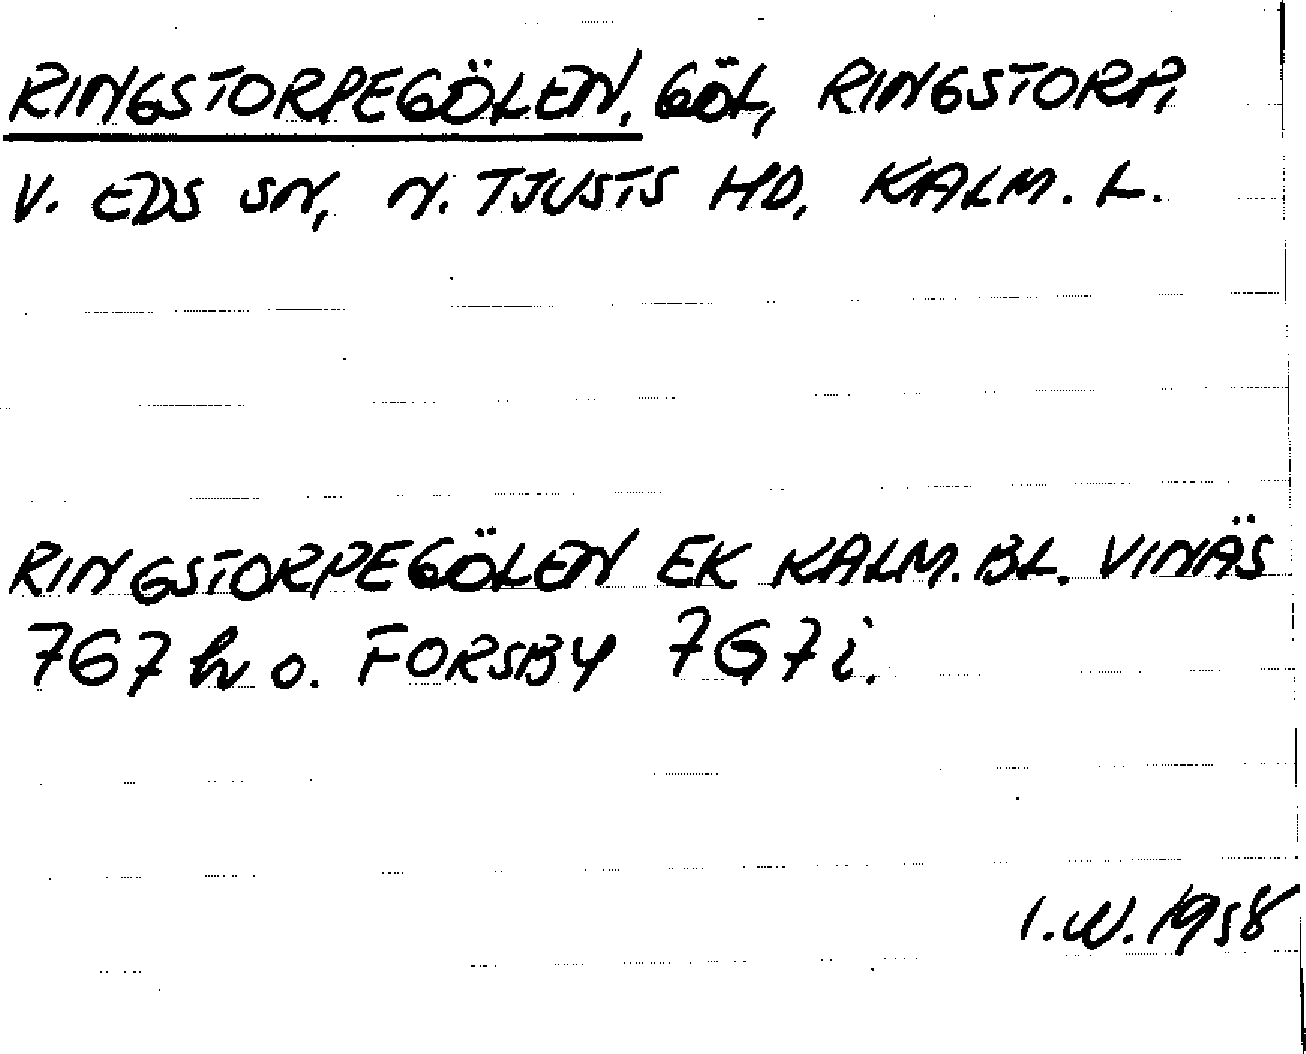 RINGSTORPEGÖLEN, GÖL, RINGSTORP,
V. EDS SN, N. TJUSTS HD, KALM. L.
RINGSTORPEGÖLEN EK KALM. BL. VINÄS
767 h o. FORSBY 767 i.
I.W. 1958